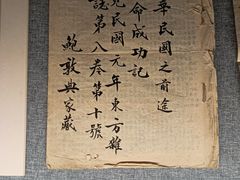 華民國之前途
命成功記
見民國元年東方雜
誌第八卷第十號
鮑敦典家藏